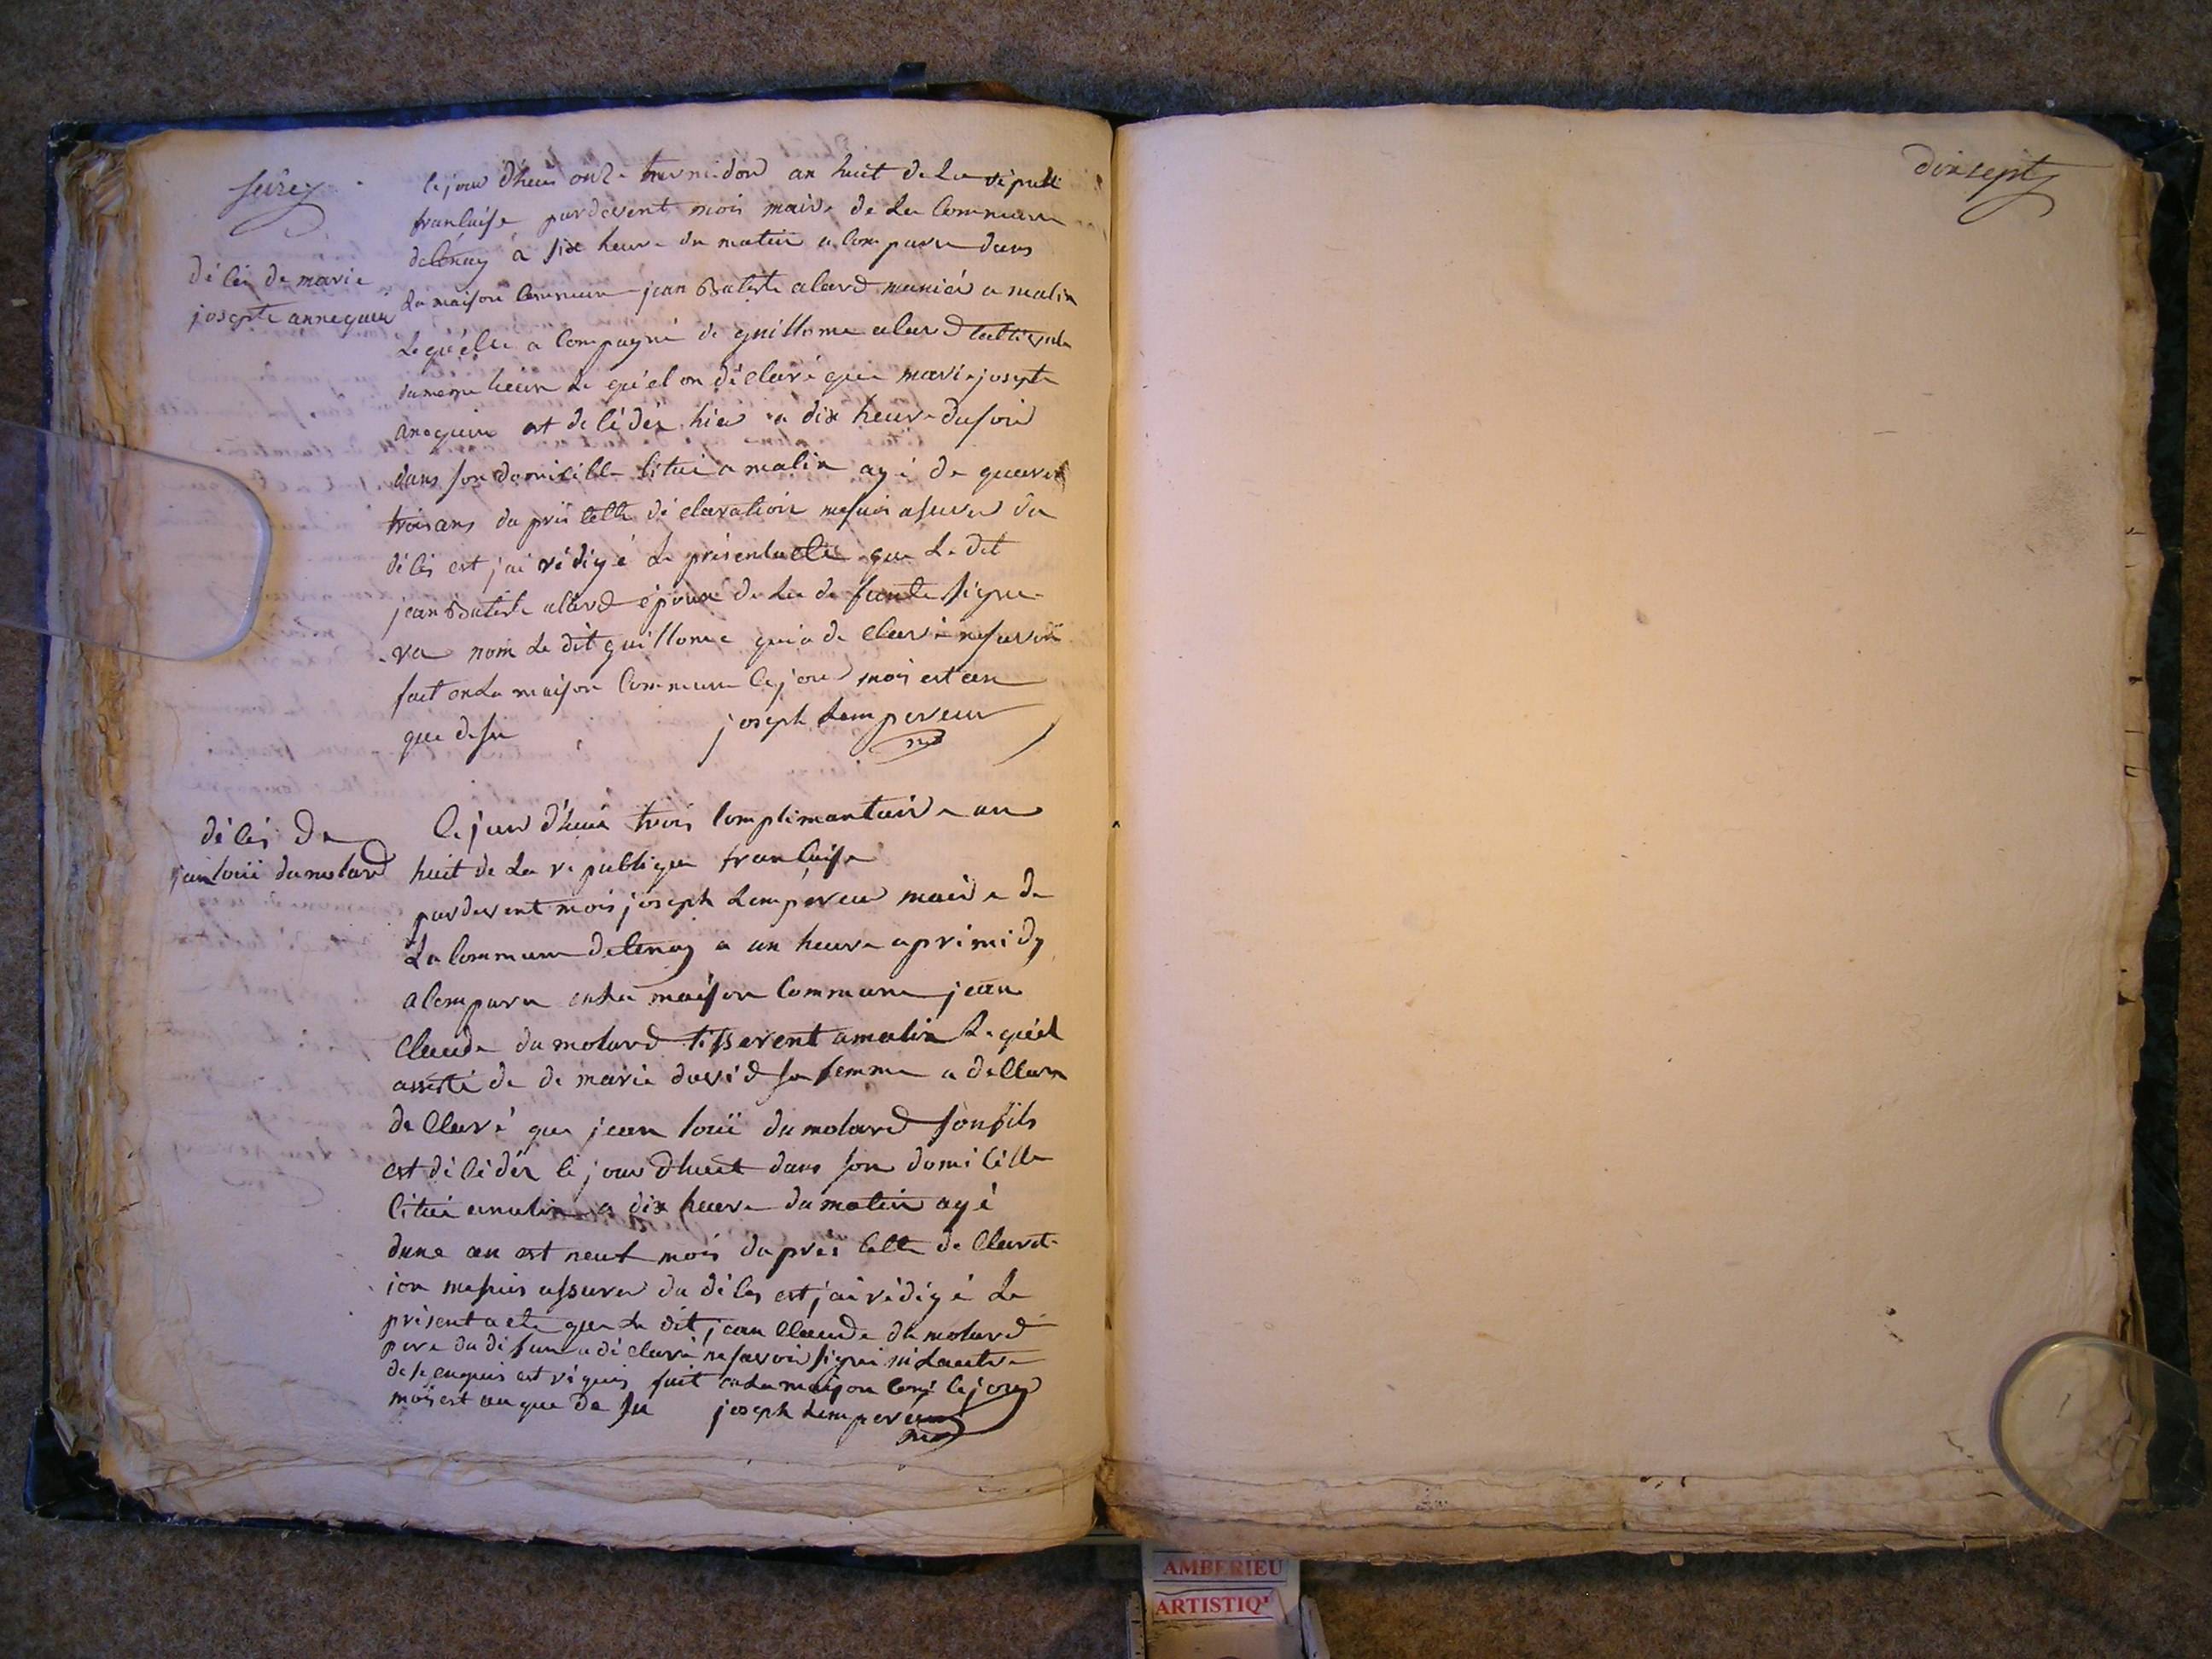 seize
décé de marie
josepte annequin
ce jour d'heui onze termidor an huit de La républi
francaise pardevent mois maire de La Commune
delénay à six heure du matin a Comparu dans
La maison Commune jean Batiste alard a malix
Lequélle a Compagné de guillome alard
dumeme lieux Le quél on déclaré que marie josepte
anequin est dé cédéz hier a dix heure dusoir
dans son domicille situé a malix agé de quaren
troisans daprés cette dé claration mesuis asurer du
décés est jai rédigé Le présentacte que Le dit
jean Batiste alard épouxé de La de funte signe-
-ra nom Le dit guillome qui a de claré nesavoir
fait enLa maison Commune Ce jour mois est an
que desu joseph Lempereur
décés de
jan loüi dumolard
Ce jour d'heui trois Complimantaire an
huit de La republique francaise
pardevent mois joseph Lempereur maire de
La Commune delenay a un heure aprimidy
a Comparu enLa maison Commune jean
Claude dumolard tisserent amalix Lequél
assisté de de marie david sa femme a dellare
de Claré que jean loüi dumolard sonfils
est décédéz ce jour dhuit dans son domicille
Citué amalix a dix heure du matin agé
dune an est neuf mois daprés Cette de Clarat-
ion mesuis assurer du décés est jai rédigé Le
présent acte que Le dit jean Claude dumolard
pere dudifun a déclaré nesavoir signé ni Lautre
de ce enquis est réquis fait enLa maison Com: Ce jour
mois est an que de su joseph Lempereur
dix sept
AMBERIEU
ARTISTIQ'